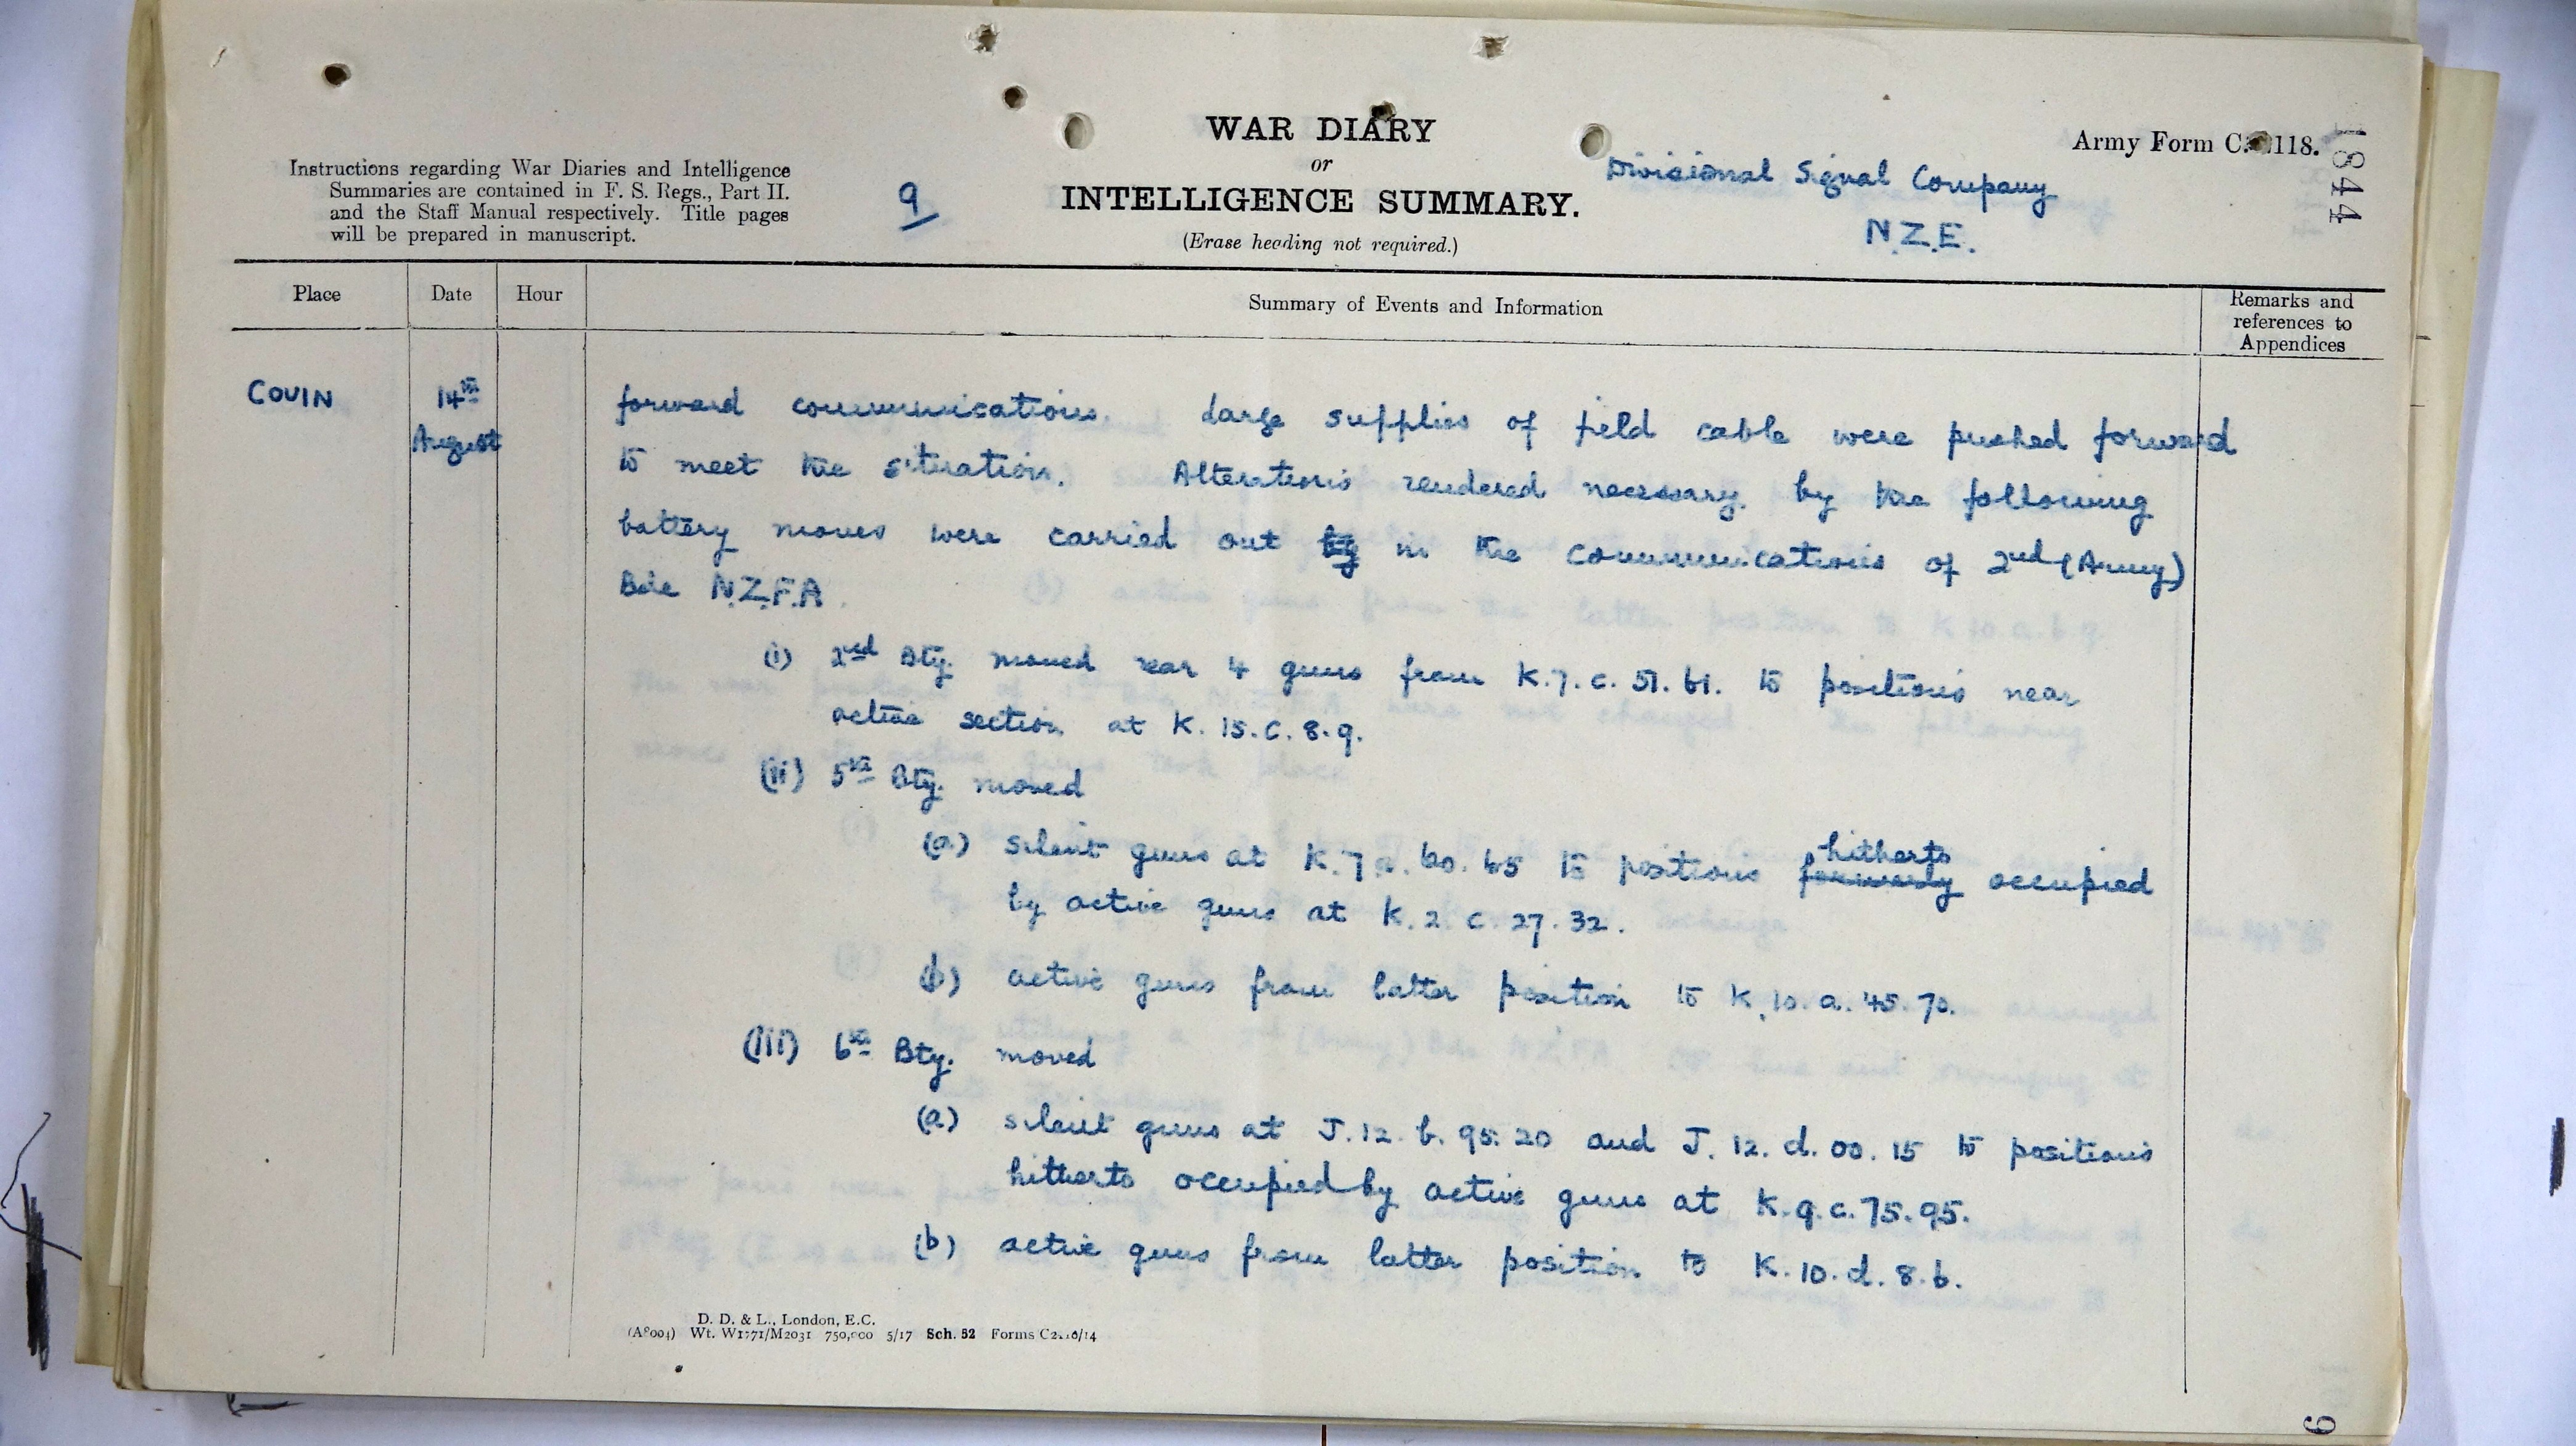 WAR DIARY
or
INTELLIGENCE SUMMARY.
(Erase heading not required.)
Instructions regarding War Diaries and Intelligence
Summaries are contained in F. S. Regs., Part II.
and the Staff Manual respectively. Title pages
will be prepared in manuscript.
9
Army Form C. 2118.
Divisional Signal Company
N.Z.E.
1844
Place Date Hour Summary of Events and Information Remarks and
references to
Appendices
COUIN 14th
August
forward communications. Large supplies of field cable were pushed forward
to meet the situation. Alterations rendered necessary by the following
battery moves were carried out by in the communications of 2nd (Army)
Bde N.Z.F.A.
(i) 2nd Bty. moved rear 4 guns from K.7.c.51.61. to positions near
active section at K.15.c.8.9.
(ii) 5th Bty. moved
(a) silent guns at K.7.a.60.65 to positions formerly hitherto occupied
by active guns at K.2.c.27.32.
(b) active guns from latter position to K.10.a.45.70.
(iii) 6th Bty. moved
(a) silent guns at J.12.b.95.20 and J.12.d.00.15 to positions
hitherto occupied by active guns at K.9.c.75.95.
(b) active guns from latter position to K.10.d.8.6.
D. D. & L., London, E.C.
(A8004) Wt. W1771/M2031 750,000 5/17 Sch. 52 Forms C2118/14
9